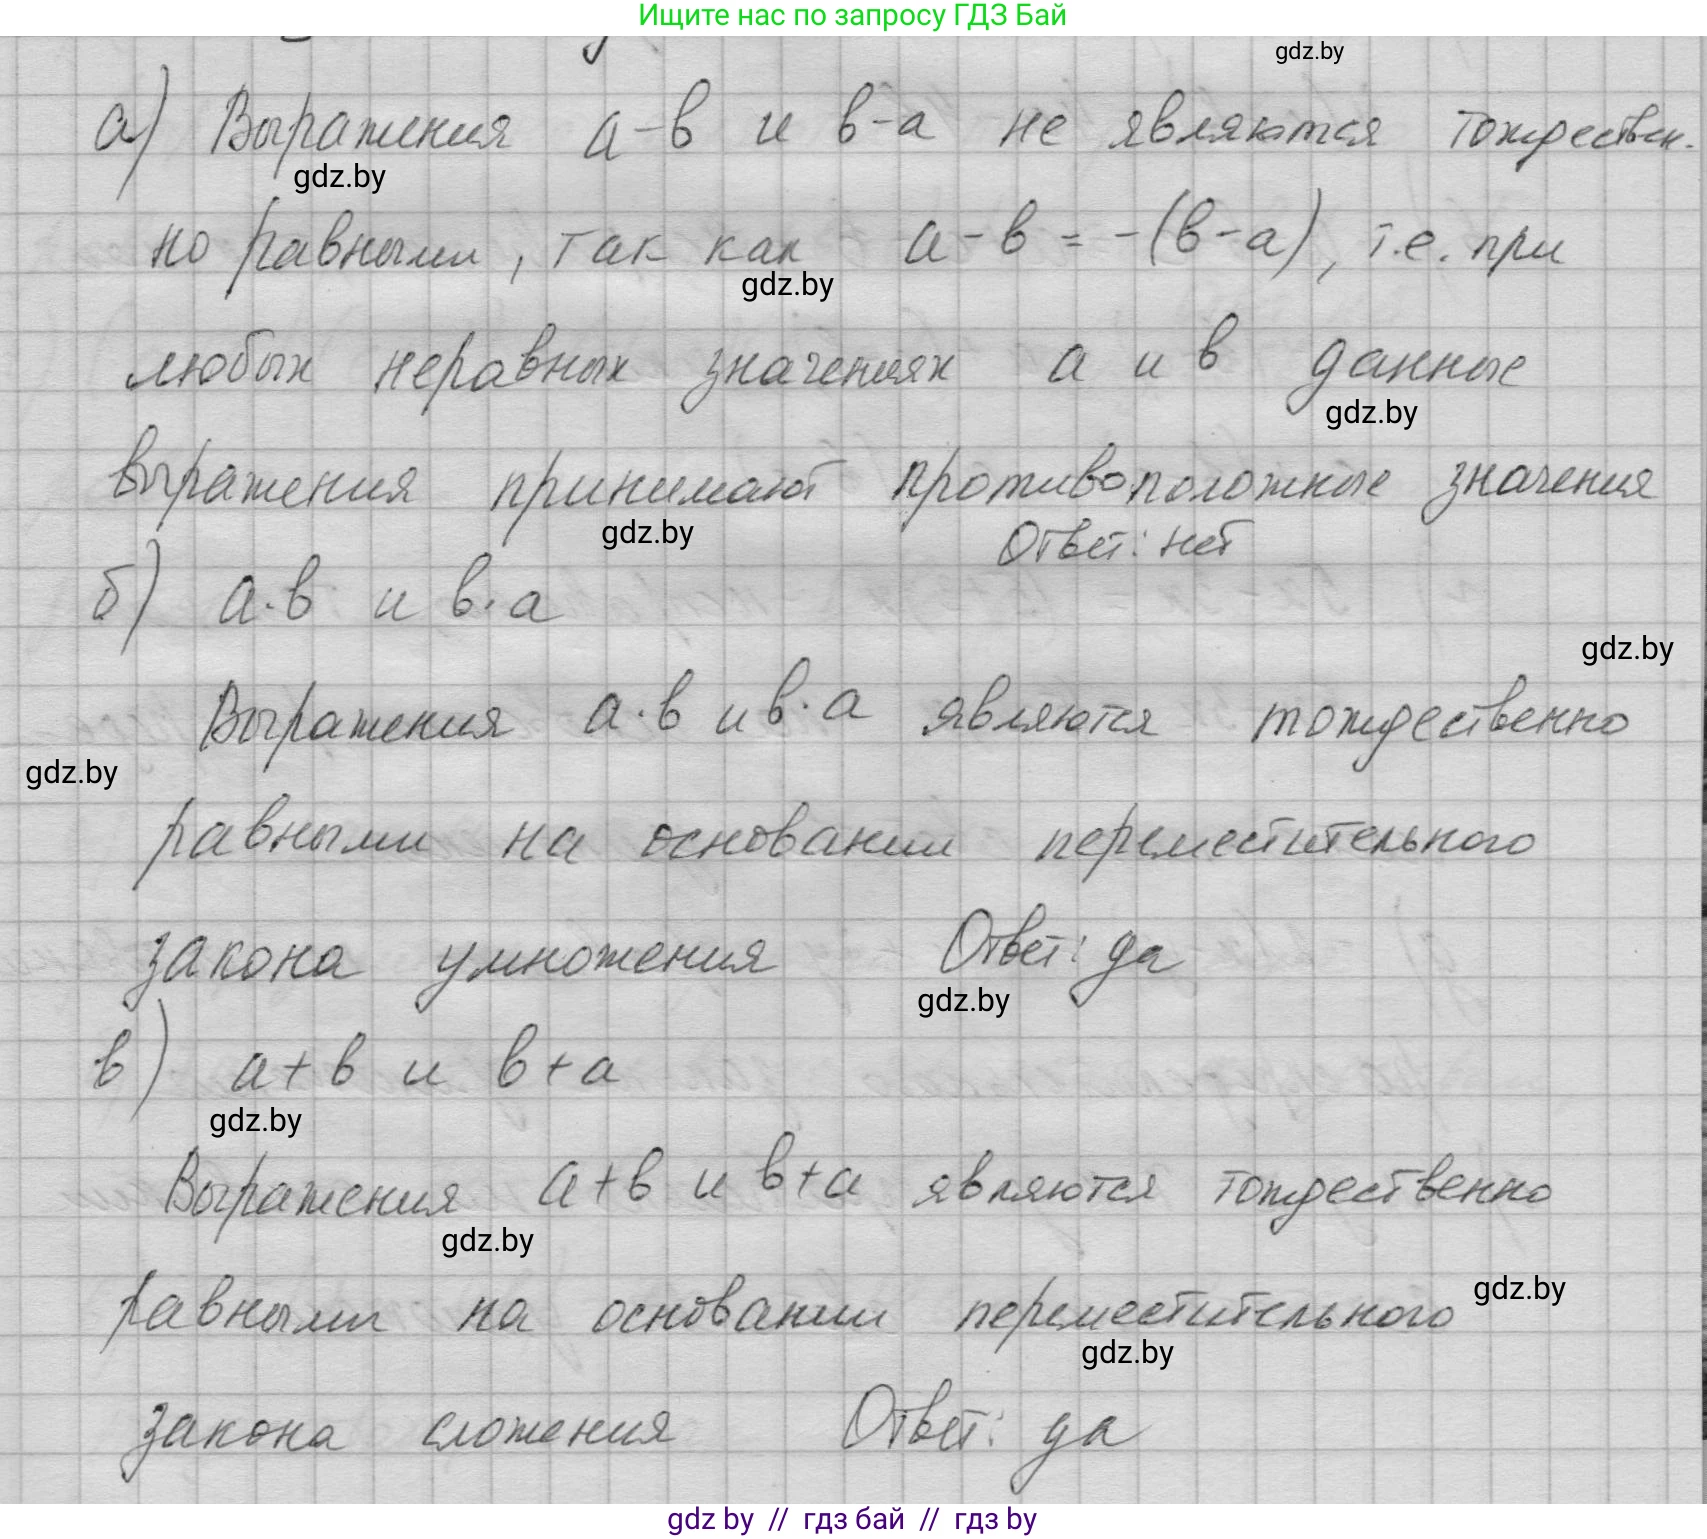 Ищите нас по запросу ГДЗ Бай
gdz.by
а) Выражения а-в и в-а не являются тождествен-
gdz.by
но равными, так как а-в = -(в-а), т.е. при
gdz.by
любых неравных значениях а и в данные
gdz.by
выражения принимают противоположные значения
gdz.by
Ответ: нет
б) а·в и в·а
gdz.by
Выражения а·в и в·а являются тождественно
gdz.by
равными на основании переместительного
закона умножения Ответ: да
gdz.by
в) а+в и в+а
gdz.by
Выражения а+в и в+а являются тождественно
gdz.by
равными на основании переместительного
gdz.by
gdz.by
закона сложения Ответ: да
gdz by // гдз бай // гдз by